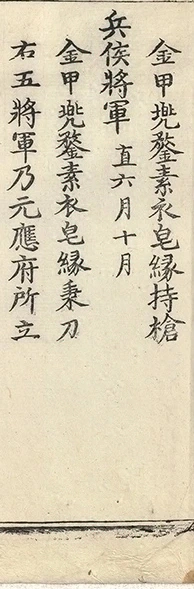 金甲兠鍪素衣皂縁持槍
兵侯將軍 直六月十月
金甲兠鍪素衣皂縁秉刀
右五將軍乃元應府所立